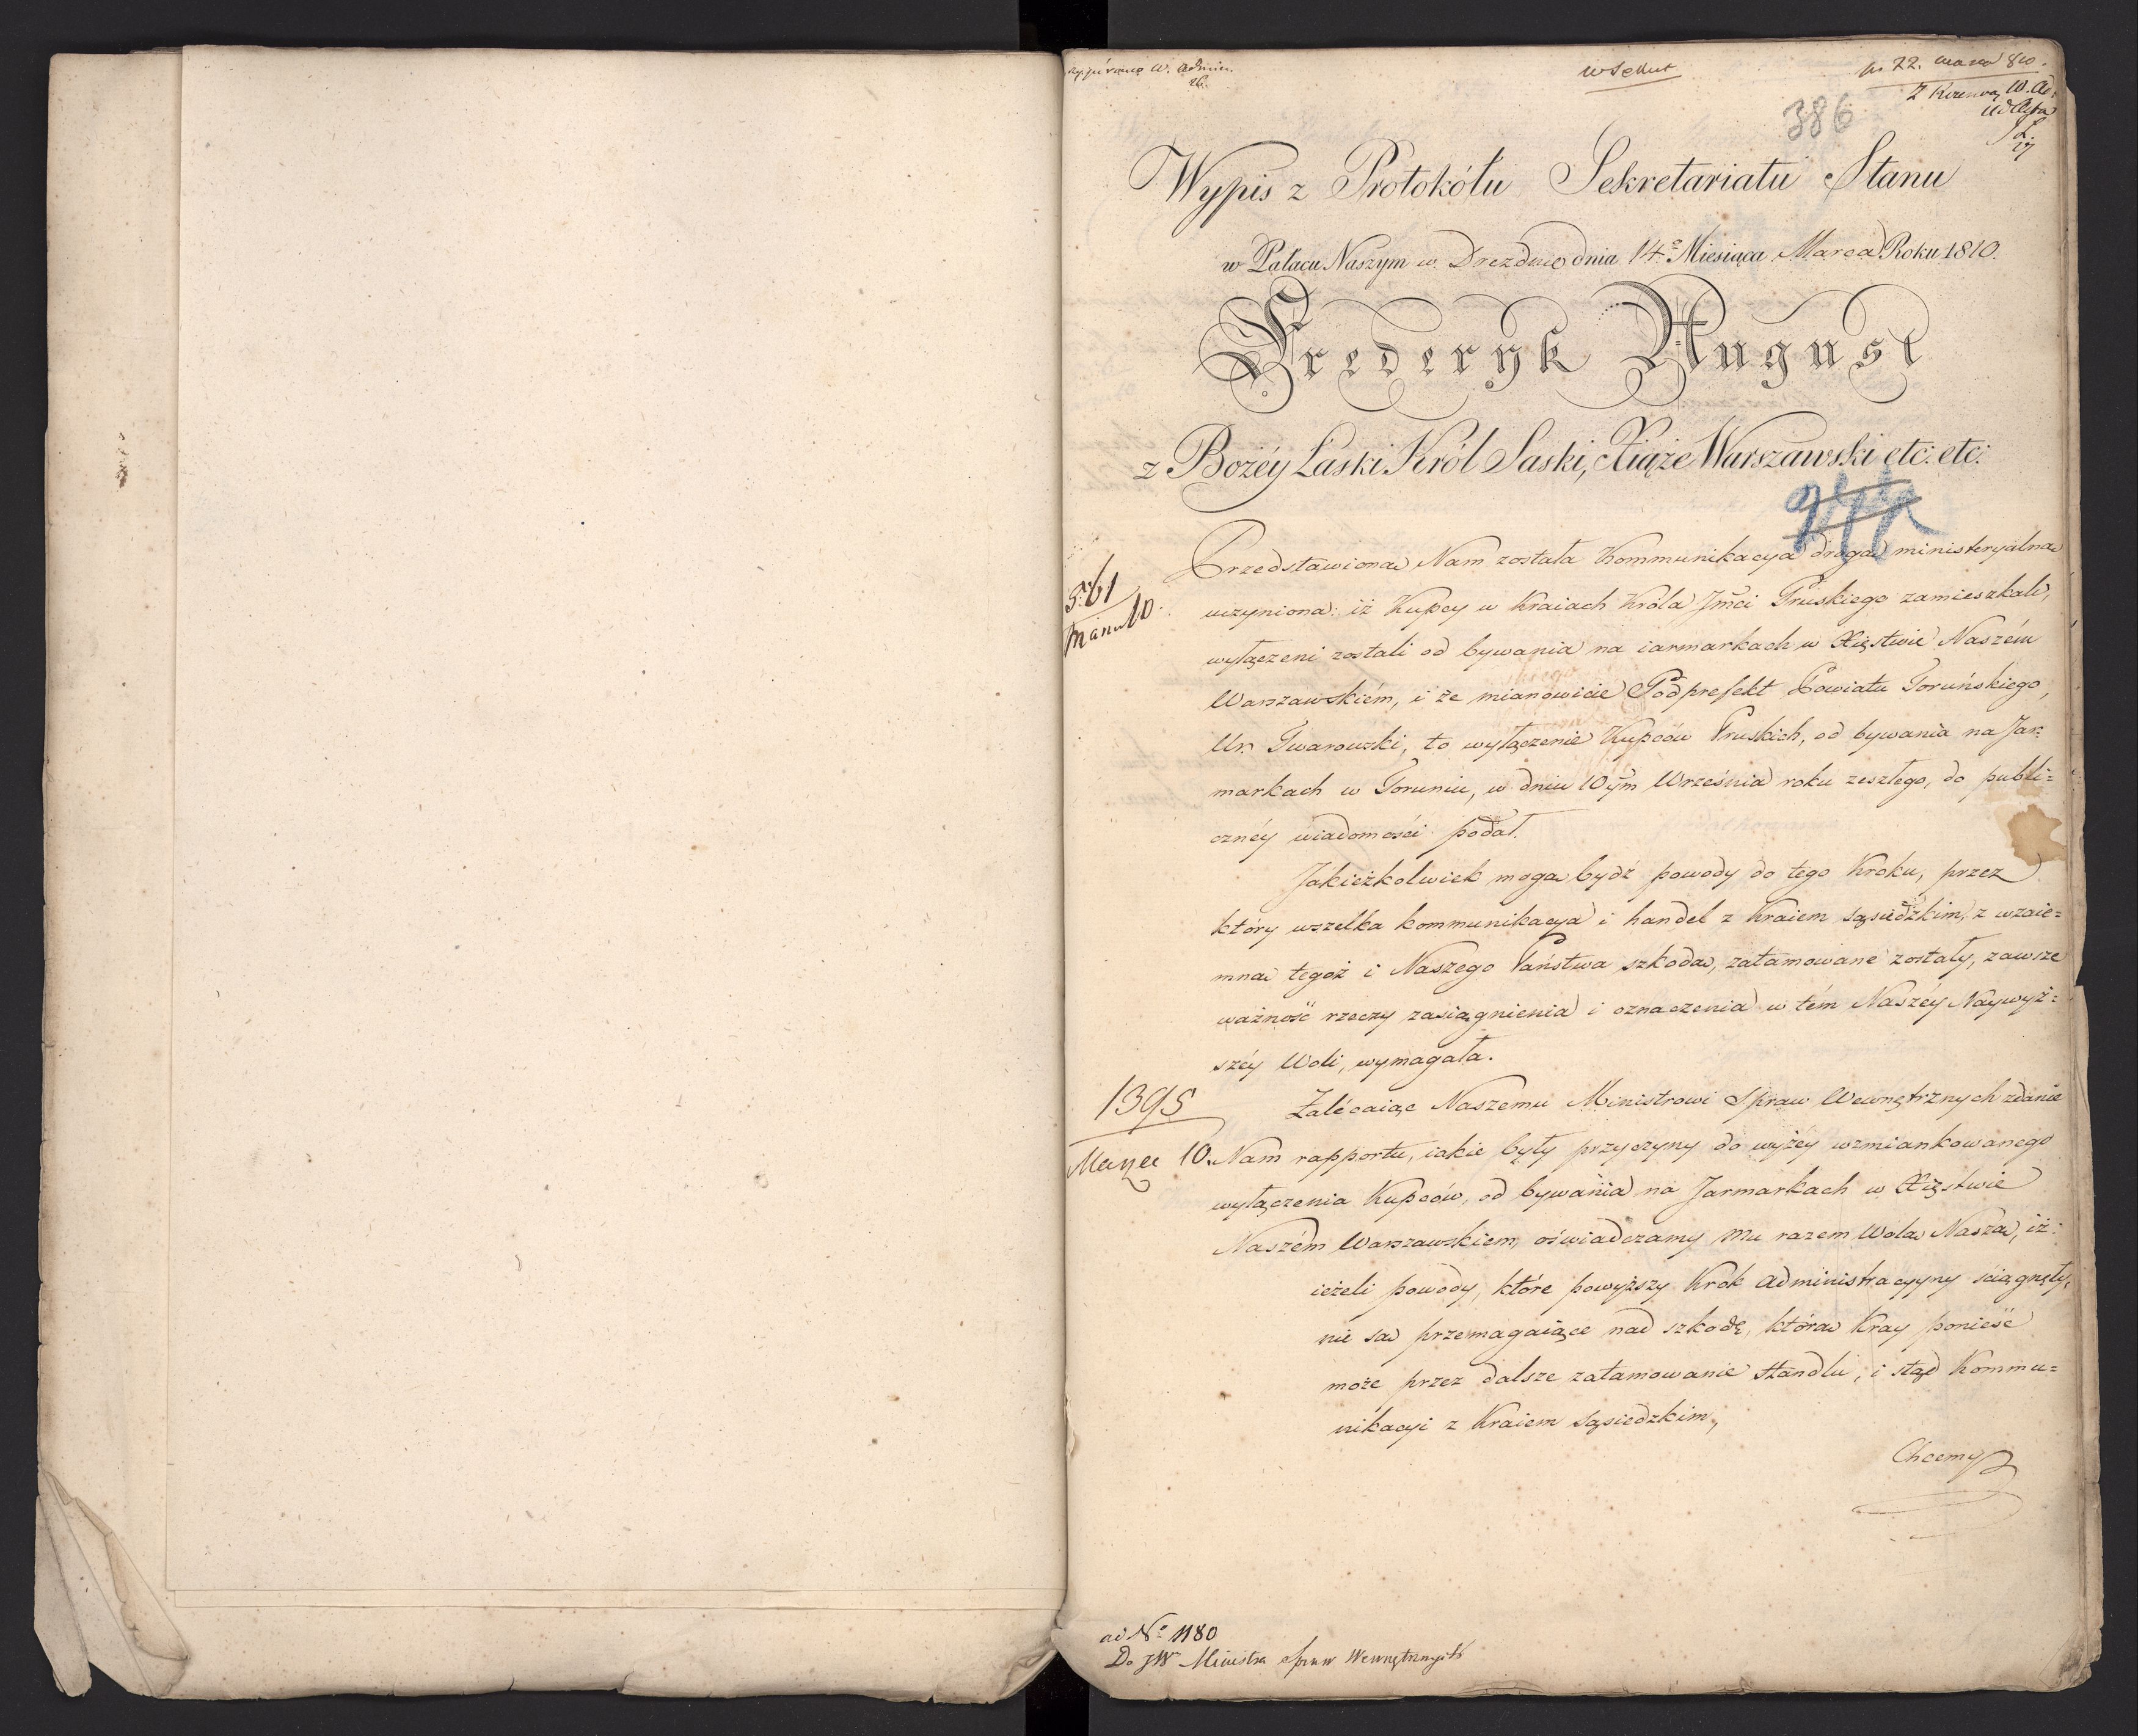 386
Wypis z Protokółu Sekretariatu Stanu
w Pałacu Naszym w Dreznie dnia 14º Miesiąca Marca Roku 1810.
Frederyk August
z Bożéy Łaski Król Saski, Xiąże Warszawski etc: etc:
561
10.
Przedstawioną Nam została Kommunikacya drogą ministeryalną
uczyniona: iż Kupcy w Kraiach Króla Jmci Pruskiego zamieszkali,
wyłączeni zostali od bywania na iarmarkach w Xięstwie Naszém
Warszawskiém, i że mianowicie Podprefekt Powiatu Toruńskiego,
Ur. Twarowski, to wyłączenie Kupców Pruskich, od bywania na Jar=
markach w Toruniu, w dniu 10ym Września roku zeszłego, do publi=
cznéy wiadomości podał.
Jakieżkolwiek mogą bydź powody do tego Kroku, przez
który wszelka kommunikacya i handel z Kraiem sąsiedzkim, z wzaie=
mną tegoż i Naszego Państwa szkodą, zatamowane zostały, zawsze
ważność rzeczy zasiągnienia i oznaczenia w tém Naszéy Naywyż=
széy Woli, wymagała.
1395
Marca 10.
Zalécaiąc Naszemu Ministrowi Spraw Wewnętrznych zdanie
Nam rapportu, iakie były przyczyny do wyżéy wzmiankowanego
wyłączenia Kupców, od bywania na Jarmarkach w Xięstwie
Naszém Warszawskiem, oświadczamy Mu razem Wolą Naszą, iż:
ieżeli powody, które powyższy Krok administracyyny ściągnęły,
nie są przemagaiące nad szkodę, którą Kray ponieść
może przez dalsze zatamowanie Handlu, i stąd Kommu=
nikacyi z Kraiem sąsiedzkim,
Chcemy
ad Nº 1180
Do JW Ministra Spraw Wewnętrznych